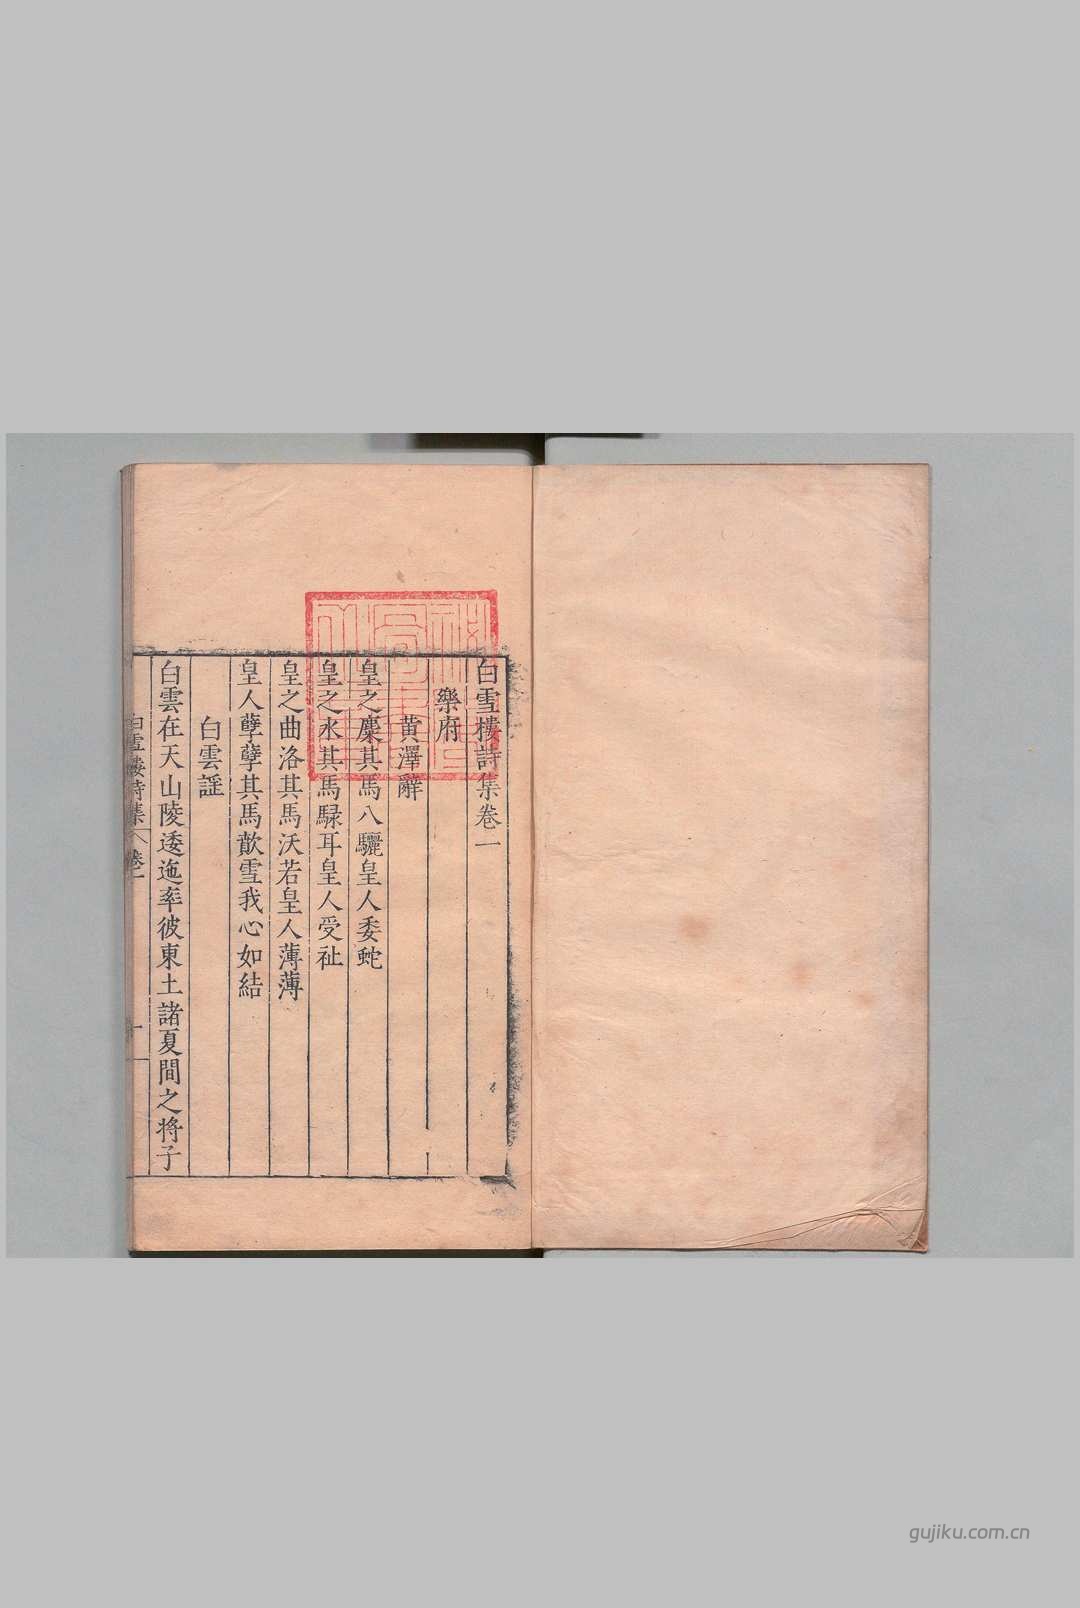 白雪樓詩集卷一
樂府
黃澤辭
皇之麋其馬八驪皇人委蛇
皇之水其馬騄耳皇人受祉
皇之曲洛其馬沃若皇人薄薄
皇人孽孽其馬歕雪我心如結
白雲謡
白雲在天山陵逶迤率彼東土諸夏間之將子
白雪樓詩集 卷一 一
gujiku.com.cn